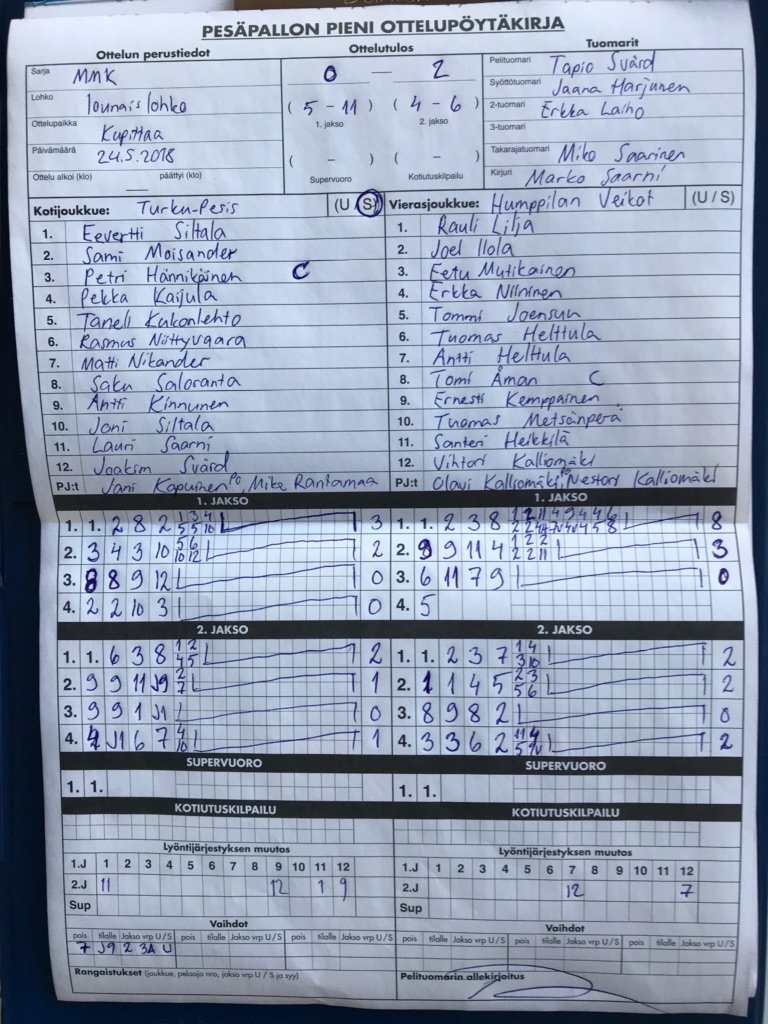 PESÄPALLON PIENI OTTELUPÖYTÄKIRJA
Ottelun perustiedot Ottelutulos Tuomarit
Sarja MMK 0 — 2 Pelituomari Tapio Svärd
Syöttötuomari Jaana Harjunen
Lohko lounaislohko ( 5 - 11 ) ( 4 - 6 ) 2-tuomari Erkka Laiho
Ottelupaikka Kupittaa 1. jakso 2. jakso 3-tuomari
Päivämäärä 24.5.2018 ( - ) ( - ) Takarajatuomari Miko Saarinen
Ottelu alkoi (klo) päättyi (klo) Supervuoro Kotiutuskilpailu Kirjuri Marko Saarni
Kotijoukkue: Turku-Pesis (U / S) Vierasjoukkue: Humppilan Veikot (U / S)
1. Eevertti Siltala 1. Rauli Lilja
2. Sami Moisander 2. Joel Ilola
3. Petri Hännikäinen C 3. Eetu Mutikainen
4. Pekka Kaijula 4. Erkka Niininen
5. Taneli Kukonlehto 5. Tommi Joensuu
6. Rasmus Niittyvaara 6. Tuomas Helttula
7. Matti Nikander 7. Antti Helttula
8. Saku Saloranta 8. Tomi Åman C
9. Antti Kinnunen 9. Ernesti Kemppainen
10. Joni Siltala 10. Tuomas Metsänperä
11. Lauri Saarni 11. Santeri Heikkilä
12. Joakim Svärd 12. Vihtori Kalliomäki
PJ:t Jani Kapuinen PO, Mika Rantamaa PJ:t Olavi Kalliomäki PO, Nestori Kalliomäki
1. JAKSO 1. JAKSO
1. 1. 2 8 2 1 3 4 5 5 10 3 1. 1. 2 3 8 8
2. 3 4 3 10 5 6 10 12 2 2. 9 9 11 4 1 2 2 2 2 11 3
3. 8 8 9 12 0 3. 6 11 7 9 0
4. 2 2 10 3 0 4. 5
2. JAKSO 2. JAKSO
1. 1. 6 3 8 1 2 4 5 2 1. 1. 2 3 7 1 4 3 10 2
2. 9 9 11 J9 2 7 1 2. 1 1 4 5 2 3 5 6 2
3. 9 9 1 J1 0 3. 8 9 8 2 0
4. 4 J1 6 7 4 10 1 4. 3 3 6 2 11 4 2
SUPERVUORO SUPERVUORO
1. 1. 1. 1.
KOTIUTUSKILPAILU KOTIUTUSKILPAILU
Lyöntijärjestyksen muutos Lyöntijärjestyksen muutos
1.J 1 2 3 4 5 6 7 8 9 10 11 12 1.J 1 2 3 4 5 6 7 8 9 10 11 12
2.J 11 12 1 9 2.J 12 7
Sup Sup
Vaihdot Vaihdot
pois tilalle Jakso vrp U / S pois tilalle Jakso vrp U / S pois tilalle Jakso vrp U / S pois tilalle Jakso vrp U / S pois tilalle Jakso vrp U / S pois tilalle Jakso vrp U / S
7 J9 2 3A U
Rangaistukset (joukkue, pelaaja nro, jakso vrp U / S ja syy) Pelituomarin allekirjoitus